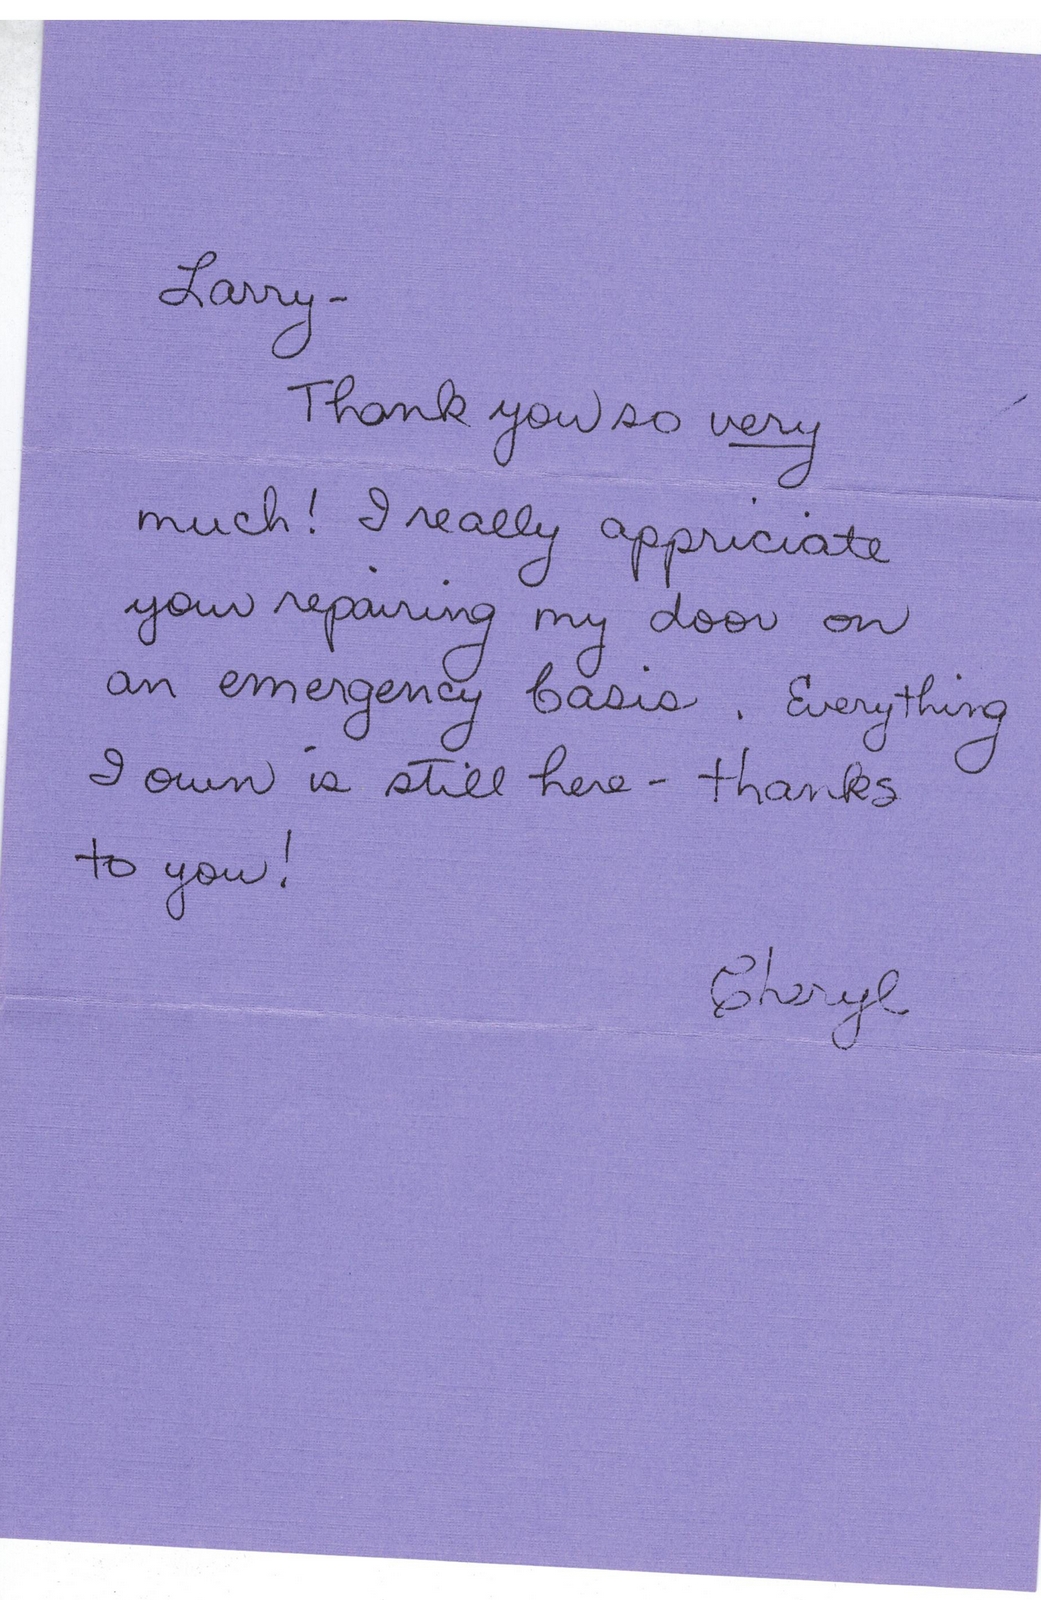 Larry-
Thank you so very
much! I really appriciate
your repairing my door on
an emergency basis. Everything
I own is still here - thanks
to you!
Cheryl